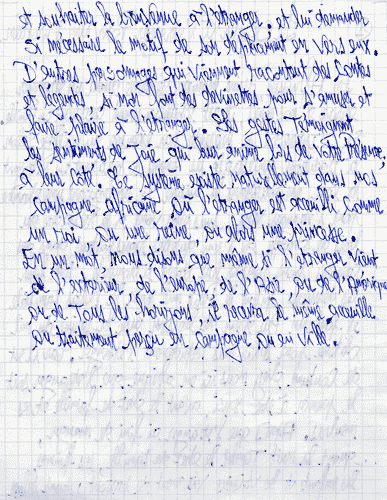 et souhaiter la bienvenue à l'étranger. et lui demander
si nécessaire le motif de son déplacement en vers eux.
D'autres personnages qui viennent racontent des contes
et légendes, si non font des devinettes pour s'amuser et
faire plaisir à l'étranger. Ces gestes Témoignent
les sentiments de Joie qui les anime lors de votre Présence,
à leur côté. Ce système existe naturellement dans nos
campagne africaine, où l'étranger est accueilli comme
un roi, ou une reine, ou alors une princesse.
En un mot, nous disons que même si l'étranger vient
de l'extérieur, de l'Europe, de l'Asie, ou de l'Amérique
ou de Tous les horizons, il recevra le même accueille
ou traitement perçu en campagne ou en ville.